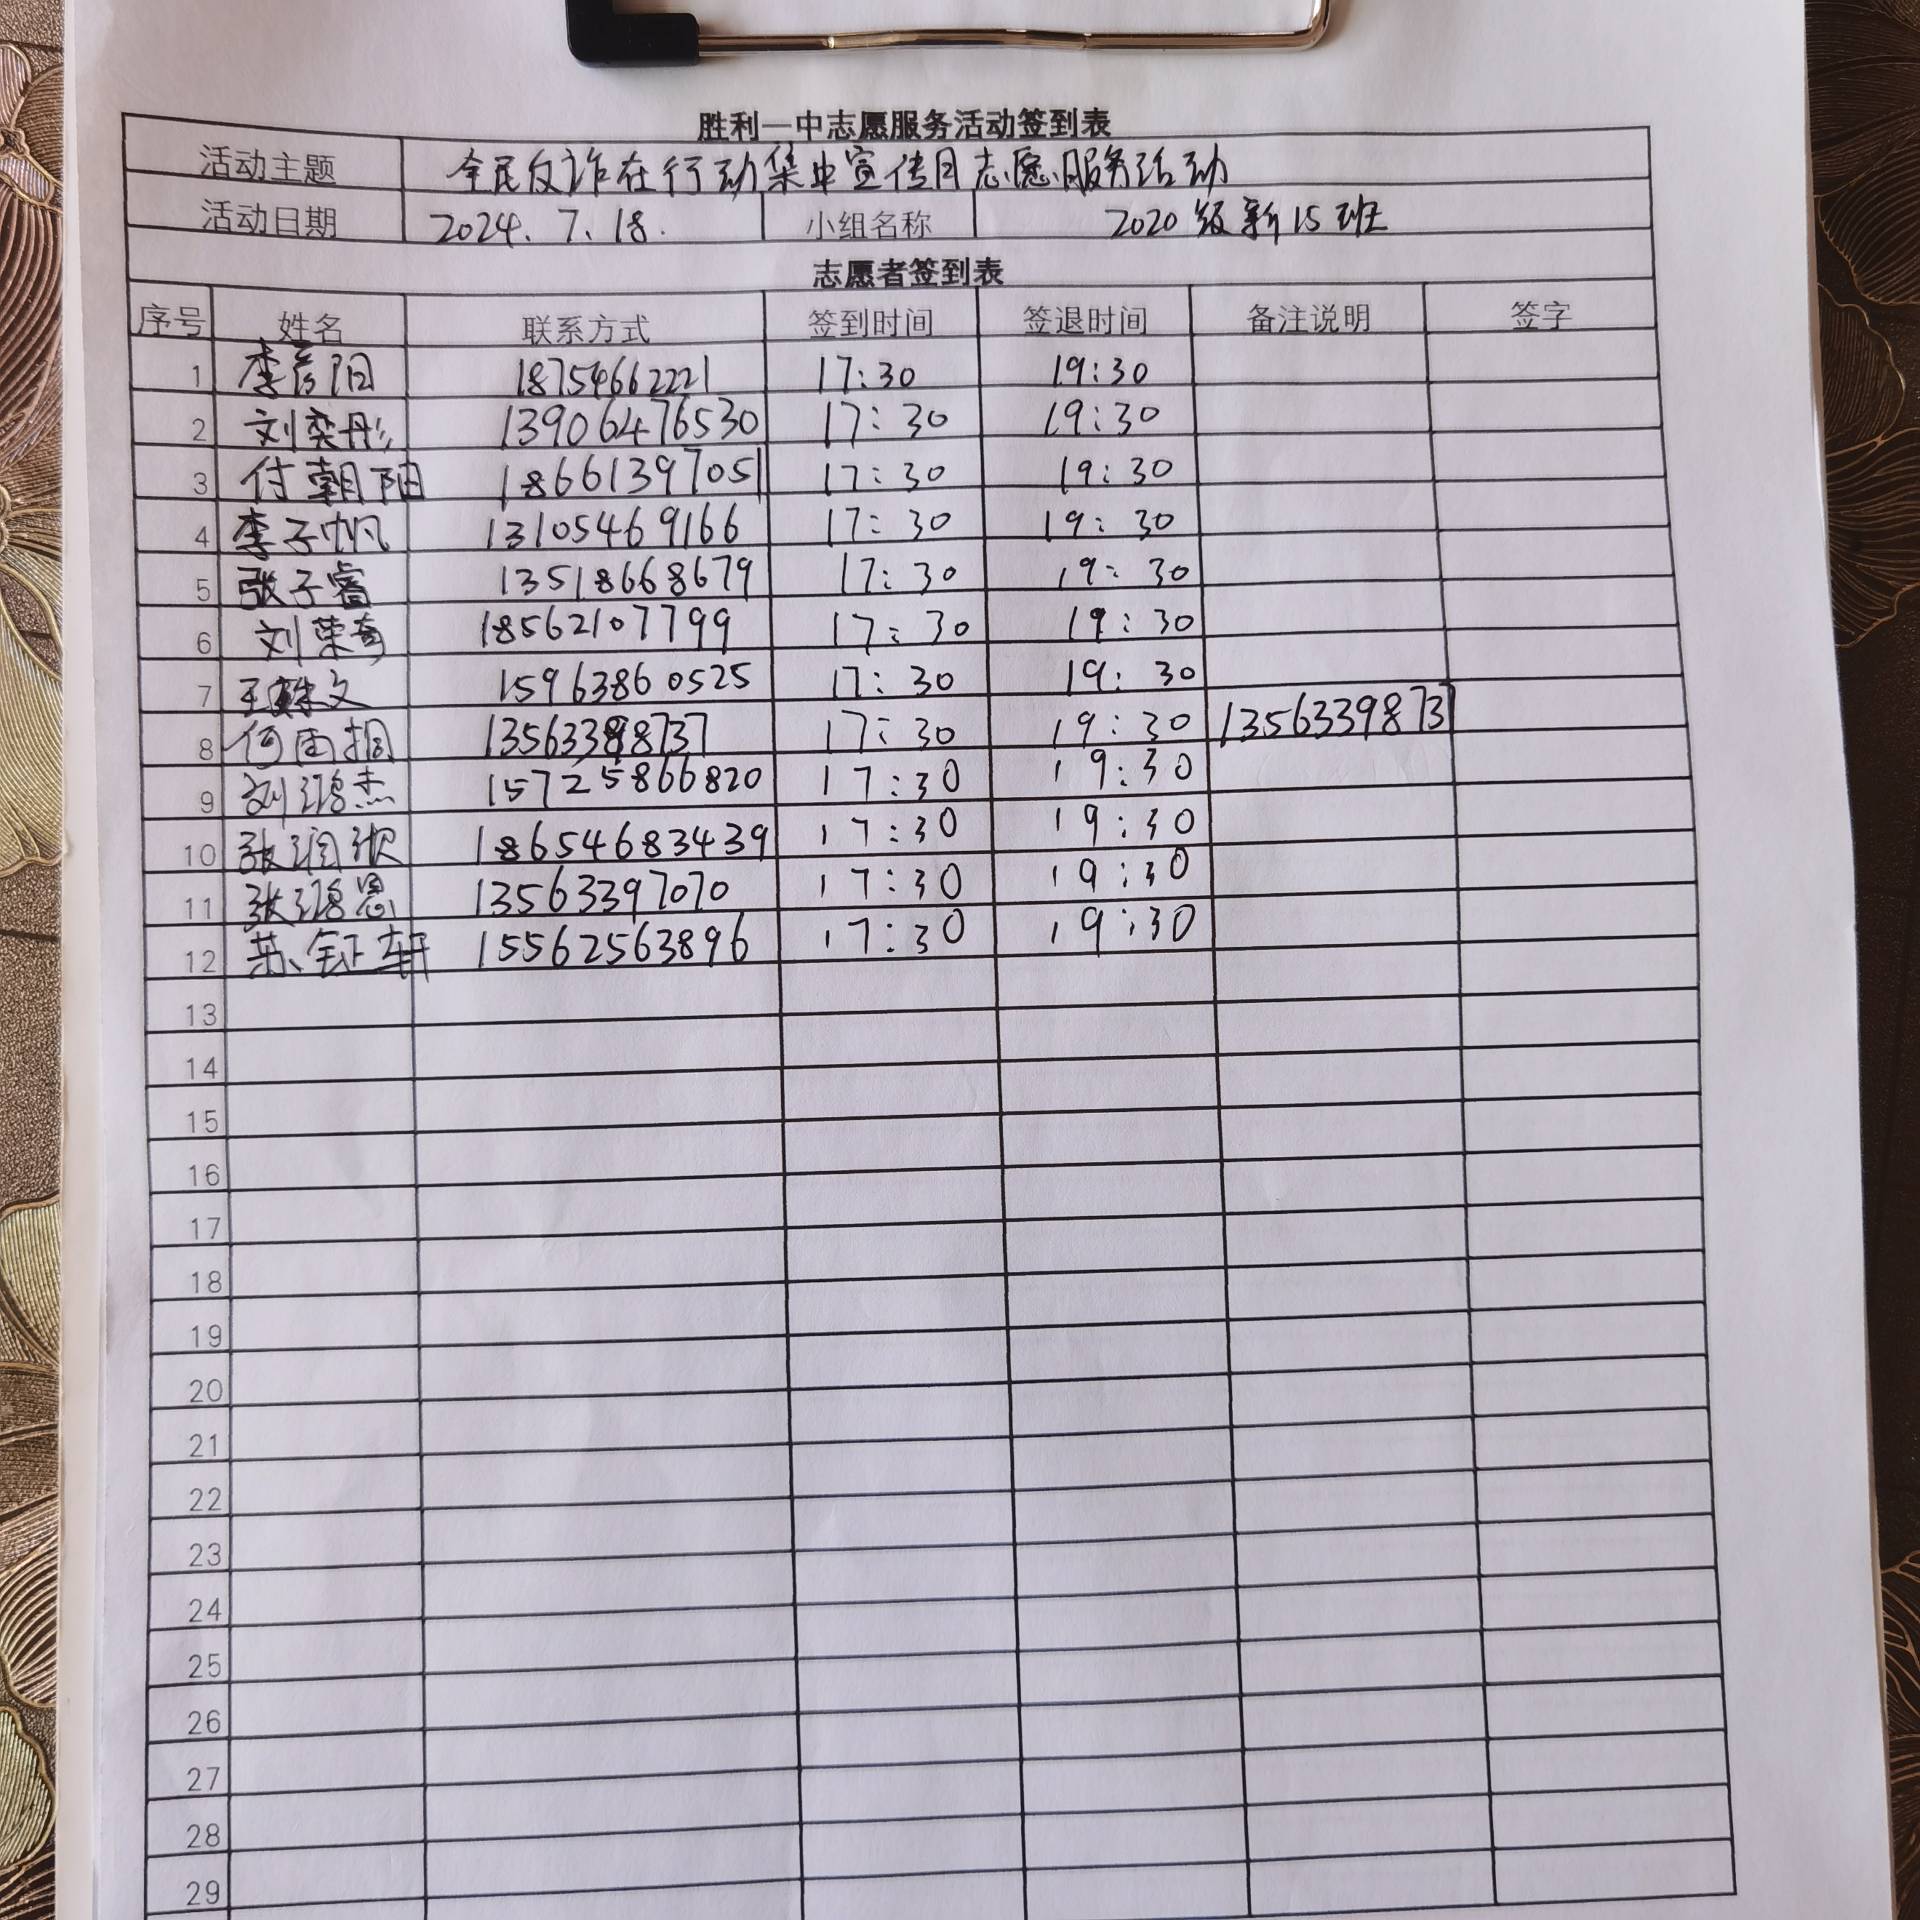 胜利一中志愿服务活动签到表
活动主题 全民反诈在行动集中宣传月志愿服务活动
活动日期 2024.7.18. 小组名称 2020级新15班
志愿者签到表
序号 姓名 联系方式 签到时间 签退时间 备注说明 签字
1 李彦阳 18754662221 17:30 19:30
2 刘奕彤 13906476530 17:30 19:30
3 付朝阳 18661397051 17:30 19:30
4 李子帆 13105469166 17:30 19:30
5 张子睿 13518668679 17:30 19:30
6 刘荣奇 18562107799 17:30 19:30
7 15963860525 17:30 19:30
8 何雨桐 13563398737 17:30 19:30 1356339873
9 刘鸿杰 15725866820 17:30 19:30
10 张润 18654683439 17:30 19:30
11 张鸿恩 13563397070 17:30 19:30
12 苏钲轩 15562563896 17:30 19:30
13
14
15
16
17
18
19
20
21
22
23
24
25
26
27
28
29